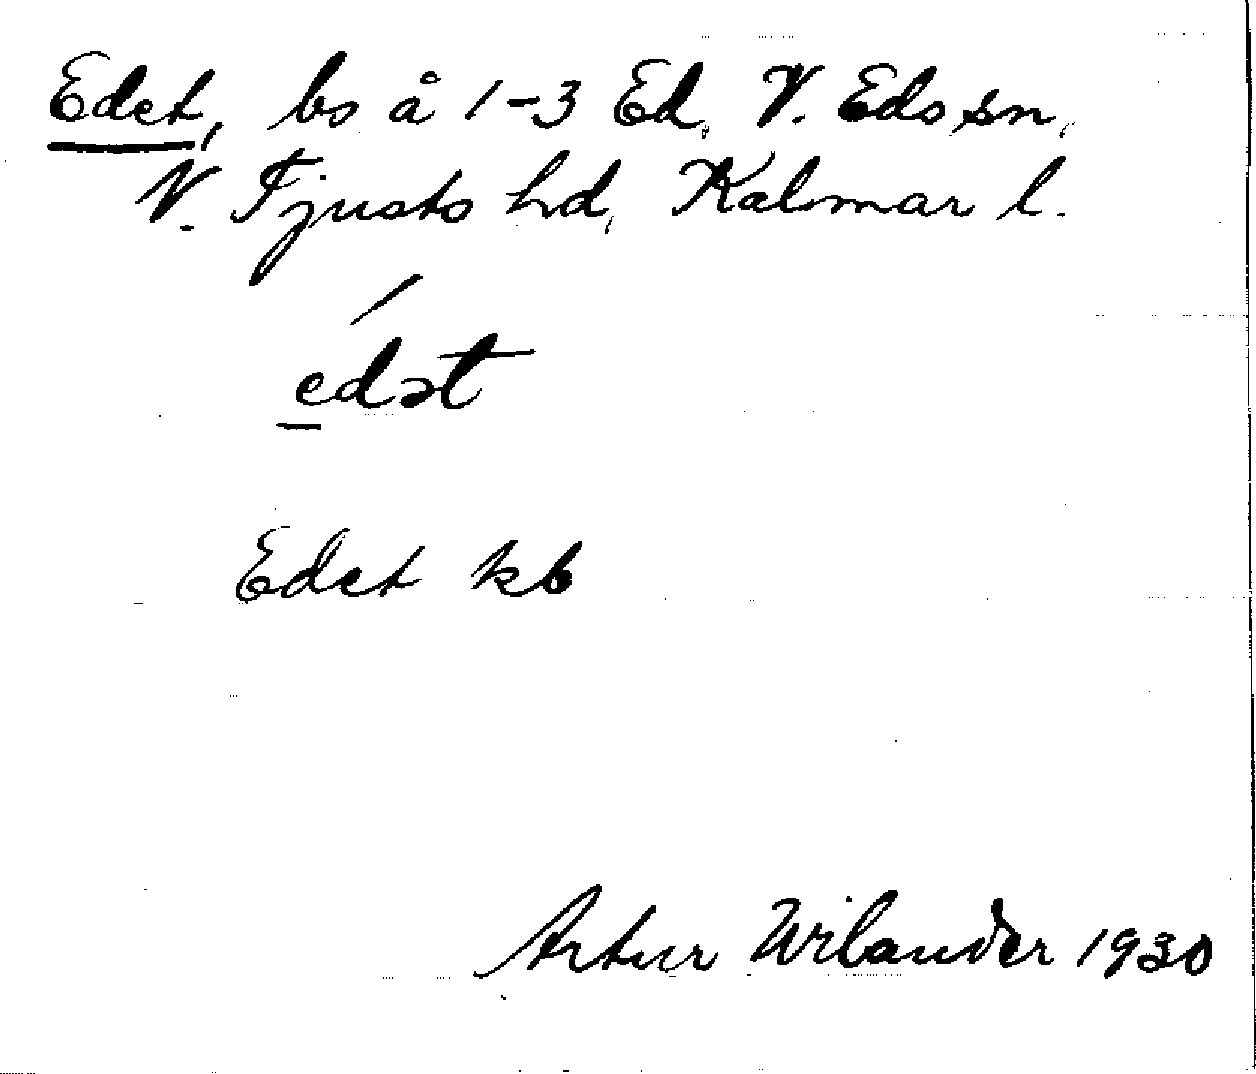 Edet, bs å 1-3 Ed, V. Eds sn,
N. Tjusts hd, Kalmar l.
édət
Edet kb
Artur Wilander 1930